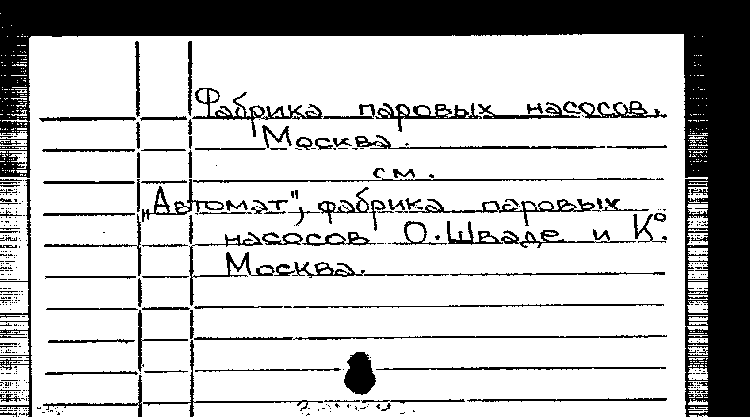 Фабрика паровых насосов.
Москва.
см.
„Автомат", фабрика паровых
насосов О. Шваде и К°.
Москва.